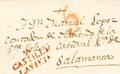 Dn. Manuel Lopez
Contador de
Sta. Iglesia Catedral de
Salamanca
CASTILLA
LA VIEJA